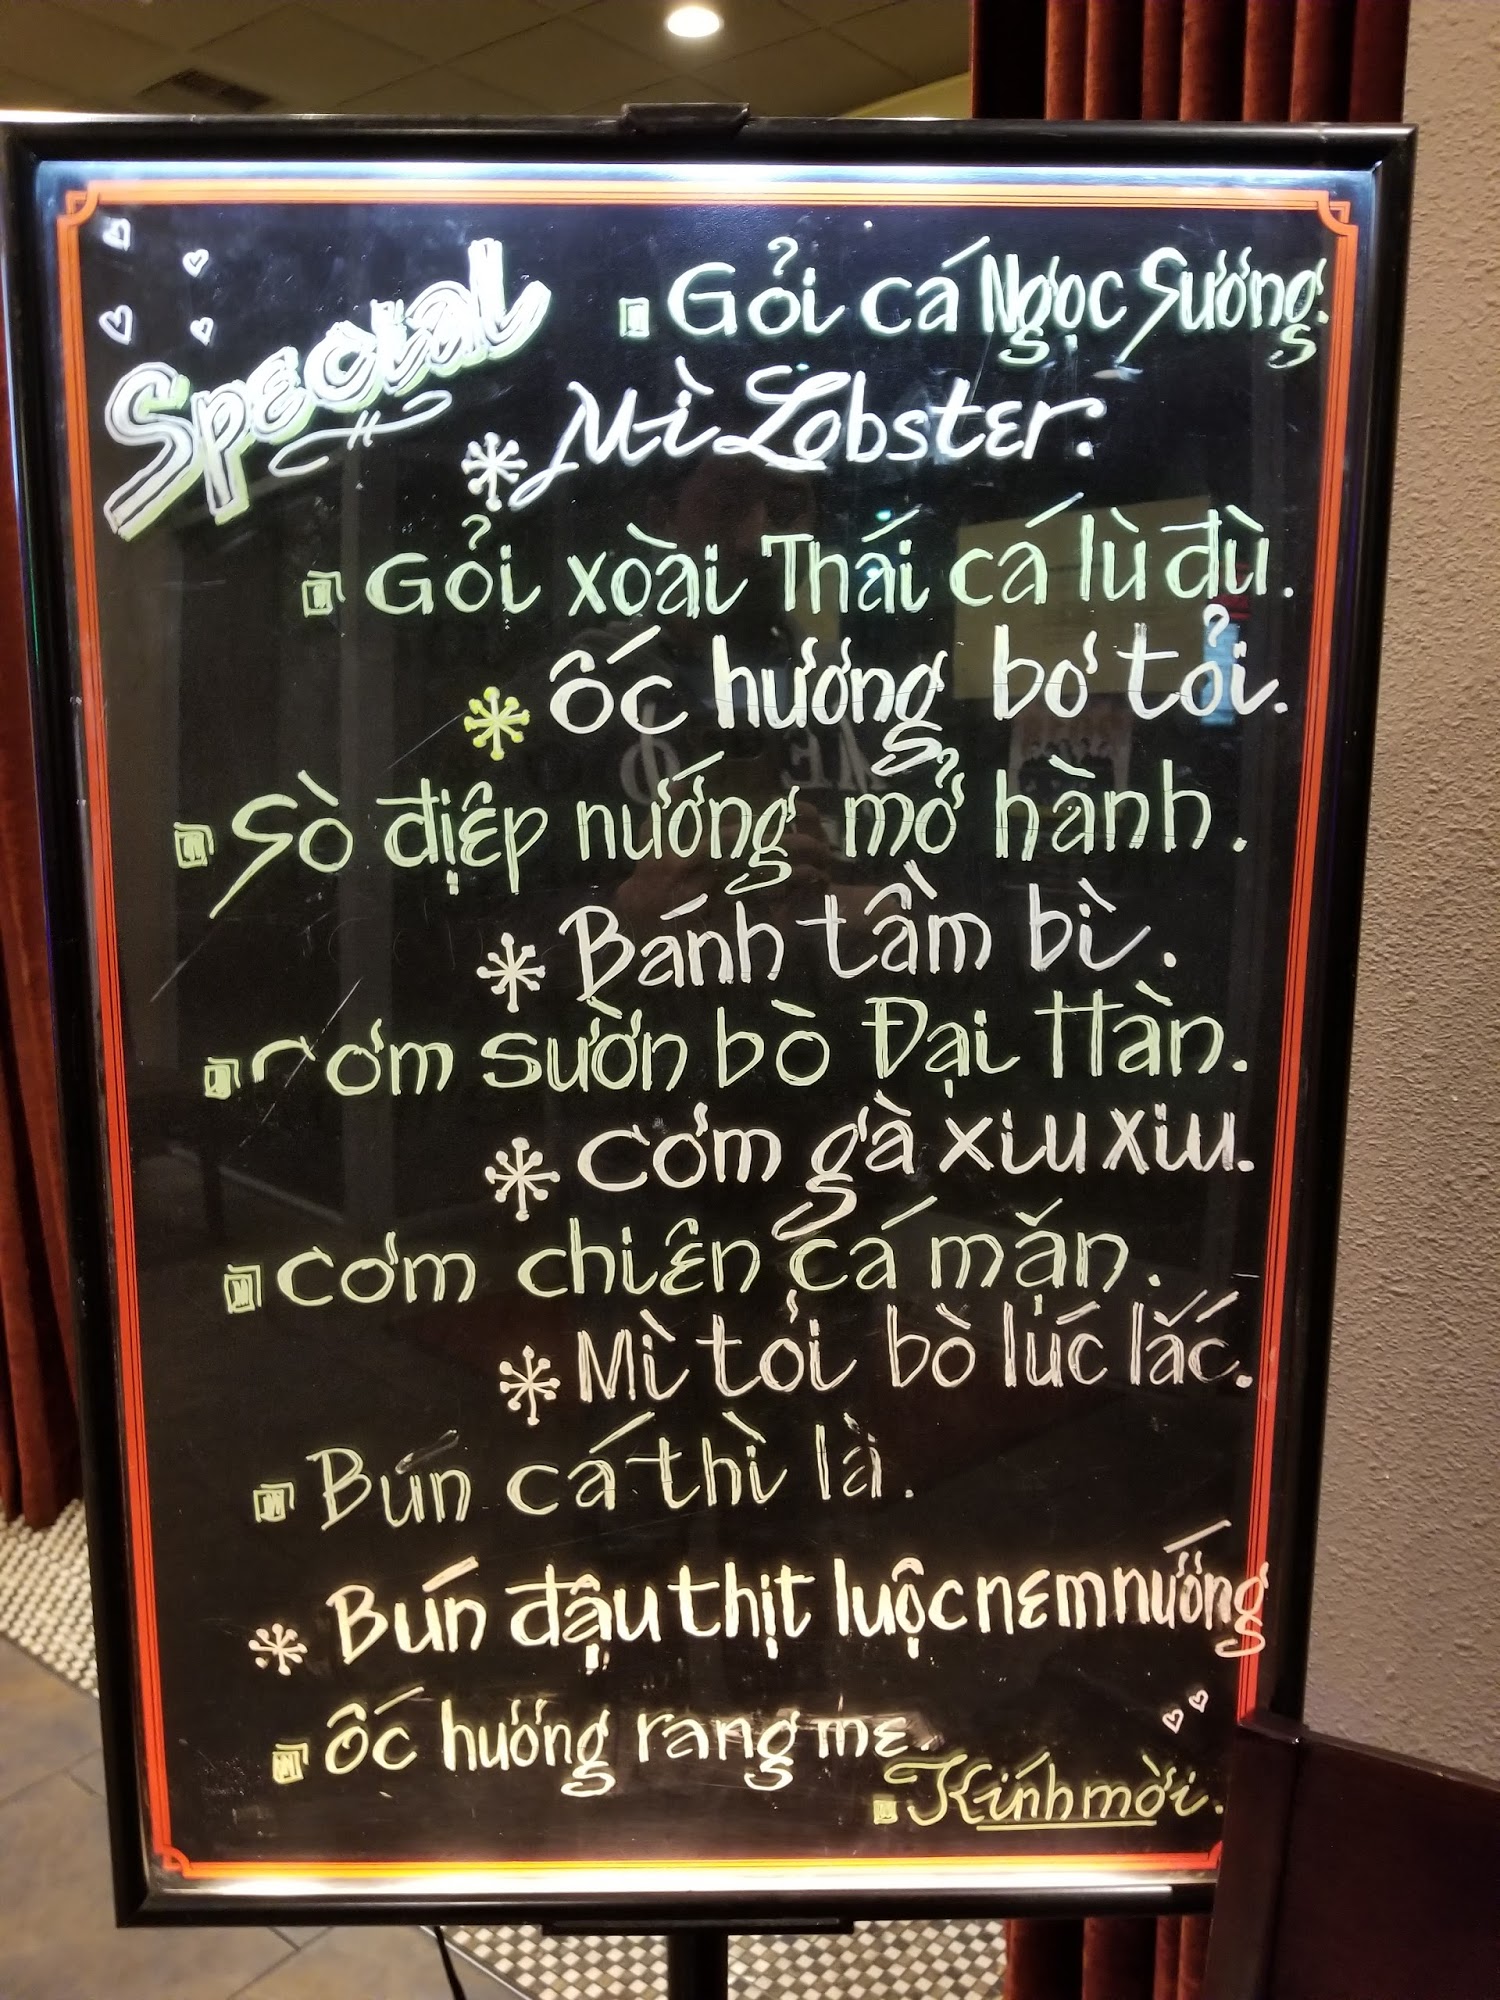 Special
Gỏi cá Ngọc Sương.
Mì Lobster.
Gỏi xoài Thái cá lù đù.
ốc hương bơ tỏi.
Sò điệp nướng mở hành.
Bánh tầm bì.
Cơm sườn bò Đại Hàn.
Cơm gà xiu xiu.
Cơm chiên cá mặn.
Mì tỏi bò lúc lắc.
Bún cá thì là.
Bún đậu thịt luộc nem nướng
ốc hương rang me.
Kính mời.